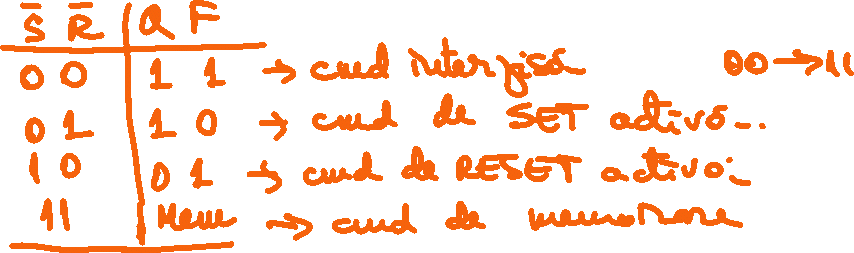 S̅ R̅ Q F
0 0 1 1 → cmd interzisă 00 → 11
0 1 1 0 → cmd de SET activă..
1 0 0 1 → cmd de RESET activă.
11 Mem → cmd de memorare